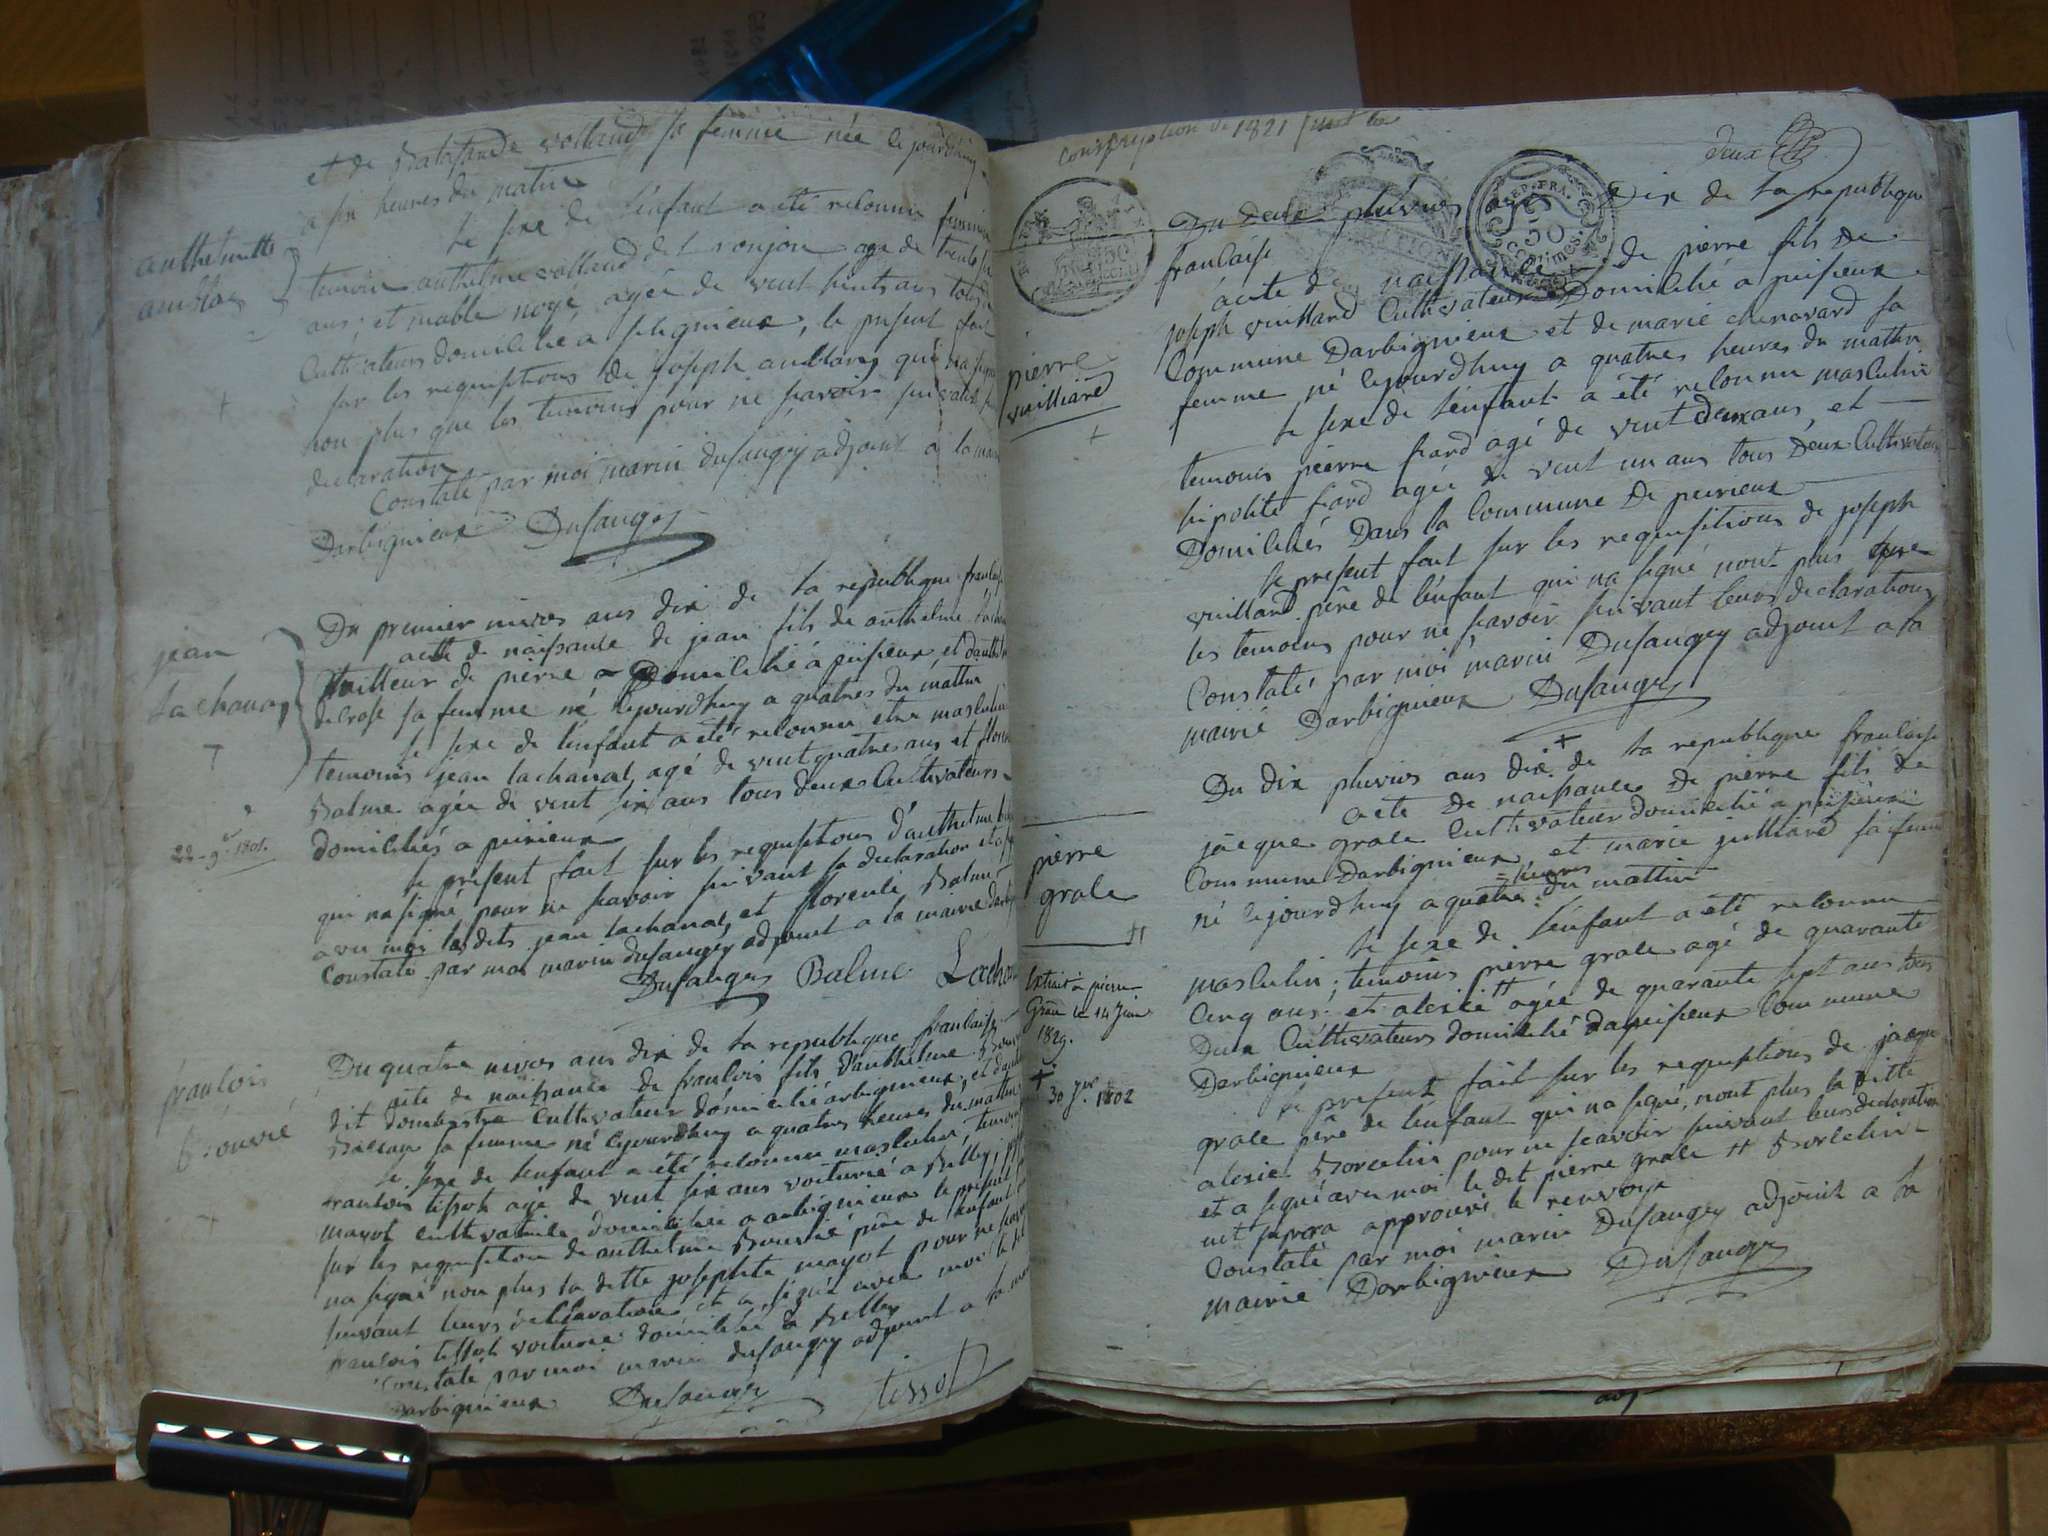 et de Balthsande volland sa femme née le jourdhuy
a six heures du matin
le sexe de l'enfant a été reconnu feminin
anthelmette
amblar
temoin anthelme volland de l onjon agé de trente six
ans, et mable noyé, agée de vent huit ans tous
Cultivateurs domicilié a peugnieux, le present fait
sur les requisitions de joseph amblard qui na signé
non plus que les temoins pour ne scavoir suivant
declaration
Constaté par moi marin dusaugey adjoint a la mairie
Darbignieux Dusaugey
jean
Lachanal
22 - 9.e 1801.
Du premier nivos ans dix de la republique francaise
acte de naissance de jean fils de anthelme
tailleur de pierre Domicilié á peisieux et
decrose sa femme né lejourdhuy a quatres du mattin
le sexe de l'enfant a été reconnu etre masculin
temoins jean lachanal, agé de vent quatre ans et
Balme agée de vent six ans tous deux Cultivateurs
domiciliés a peirieux
le present fait sur les requisitions d'anthelme
qui na signé pour ne scavoir suivant sa declaration et a
avec moi lesdits jean lachanal, et florenle Balme
Constaté par moi marin dusaugey adjoint a la mairie
Dusaugey Balme Lachan
francois
Bouvié
Du quatre nivos ans dix de la republique francaise
acte de naissance de francois fils d'anthelme
dit dombastre Cultivateur domicilié arbignieux, et
sa femme né lejourdhuy a quatres heures du mattin
le sexe de l'enfant a été reconnu masculin, temoins
francois tissot agé de vent six ans voiturié a Belley,
mayot cultivatrice domiciliée a arbignieux le present
sur les requisition de anthelme Bouvié père de lenfant
na signé non plus la ditte josephte mayot pour ne
suivant leurs declaration et a signé avec moi le dit
francois tissot voiturié domicilié a Belley
Constaté par moi marin dusaugey adjoint a la
Darbignieux Dusaugey tissot
Conscription de 1821
deux
REP. FRA.
50
Centimes.
Du deux pluvios ans Dix de la republique
francaise
pierre
vuilliard
acte de naissance de pierre fils de
joseph vuillard Cultivateur Domicilié a peisieux
Commune Darbignieux et de marie chenavard sa
femme né lejourdhuy a quatres heures du mattin
le sexe de l'enfant a été reconnu masculin
temoins pierre fiard agé de vent deux ans, et
hipolite fiard agée de vent un ans tous deux Cultivateurs
Domiciliés Dans la Commune de peirieux
le present fait sur les requisitions de joseph
vuillard père de l'enfant qui na signé nont plus que
les temoins pour ne scavoir suivant leurs declarations
Constaté par moi marin Dusaugey adjoint a la
mairie Darbignieux Dusaugey
Du dix pluvios ans dix de la republique francaise
acte de naissance de pierre fils de
jacque grale Cultivateur domicilié a peisieux
Commune Darbignieux, et marie julliard sa femme
= heures
né lejourdhuy a quatre = du mattin
pierre
grale
le sexe de l'enfant a été reconnu
masculin; temoins pierre grale agé de quarante
Cinq ans et alexie # agée de quarante sept ans tous
Deux Cultivateurs domicilié a peisieux Commune
Darbignieux
Extrait a pierre
Grale le 14 Juin
1829.
30 J.er 1802
le present fait sur les requisitions de jacque
grale père de l'enfant qui na signé, nont plus la ditte
alexie Borcelin pour ne scavoir suivant leurs declarations
et a signé avec moi le dit pierre grale # Borcelin
approuvé le renvoye
Constaté par moi marin Dusaugey adjoint a la
mairie Darbignieux Dusaugey